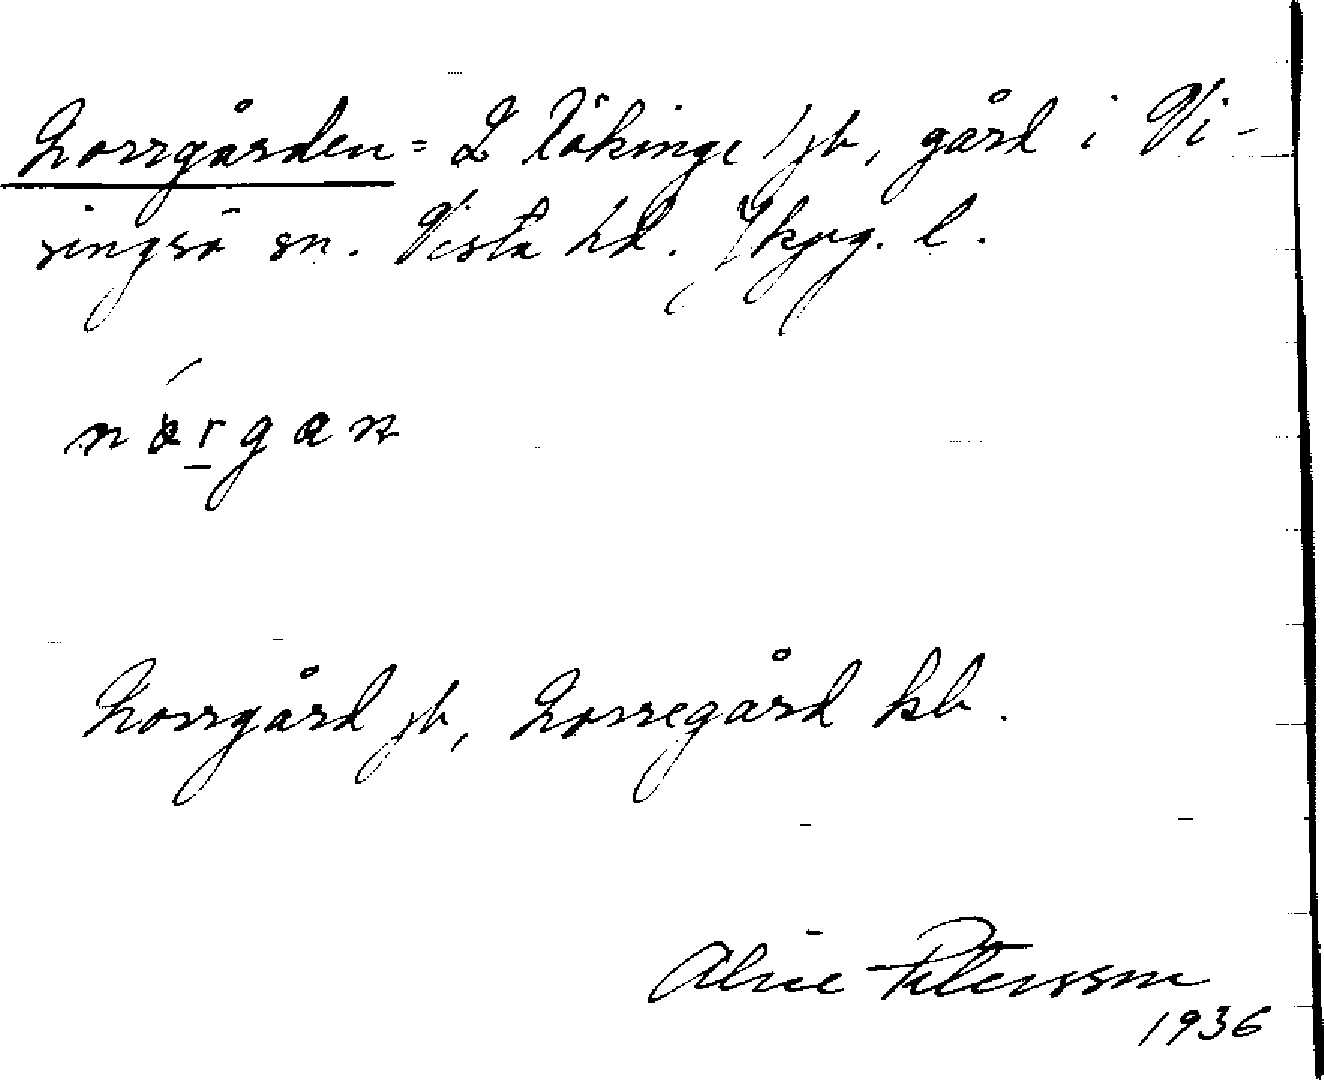 Norrgården = L Rökinge 1 jb, gård i Vi-
singsö sn. Vista hd. Jkpg. l.
nårgan
Norrgård jb, Norregård kb.
Alice Petersson
1936